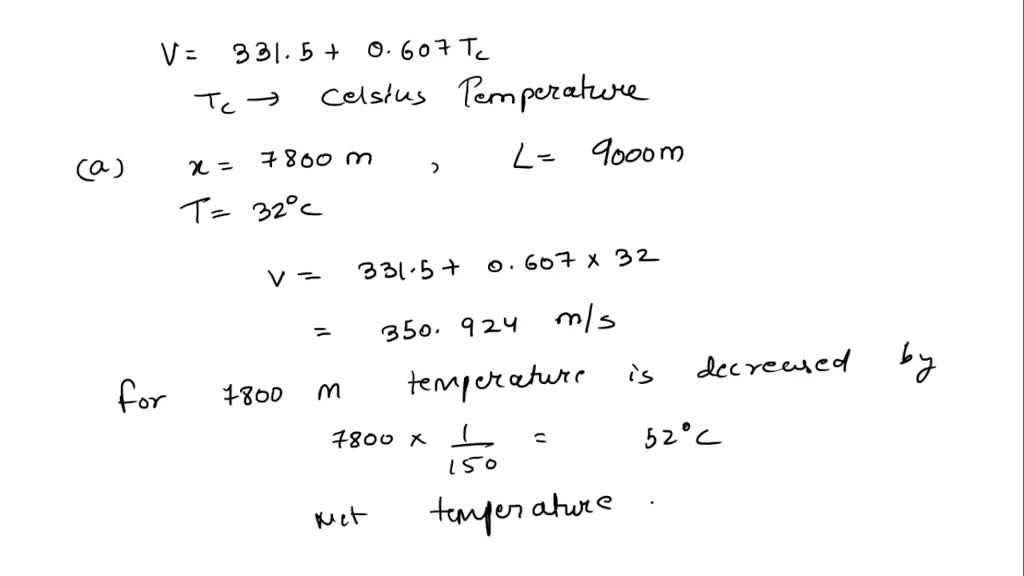 V = 331.5 + 0.607 Tc
Tc → Celsius Temperature
(a) x = 7800 m , L = 9000m
T = 32°C
V = 331.5 + 0.607 × 32
= 350.924 m/s
for 7800 m temperature is decreased by
7800 × 1/150 = 52°C
Net temperature .